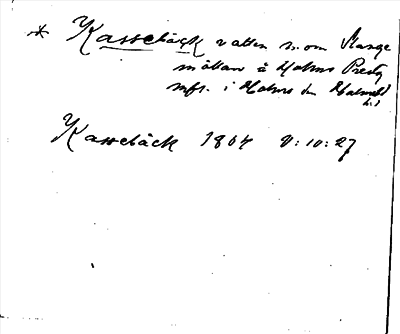 * Kassebäck vatten n. om Stange
måttan å Holms Prestg
mfr. i Holms sn Halmst
h:d
Kassebäck 1867 V:10:27